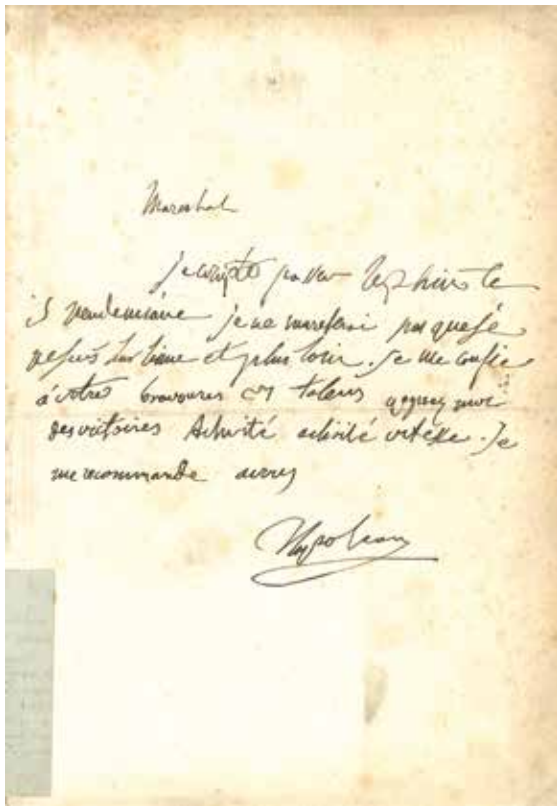 Mareshal
Je compte passer le Rhin le
5 vendemiaire je ne maresterai pas que je
ne sois sur et plus loin. Je me confie
à votre bravoures et talens gagnez moi
des victoires Activité activité vitesse. Je
me recommande a vous
Napoleon